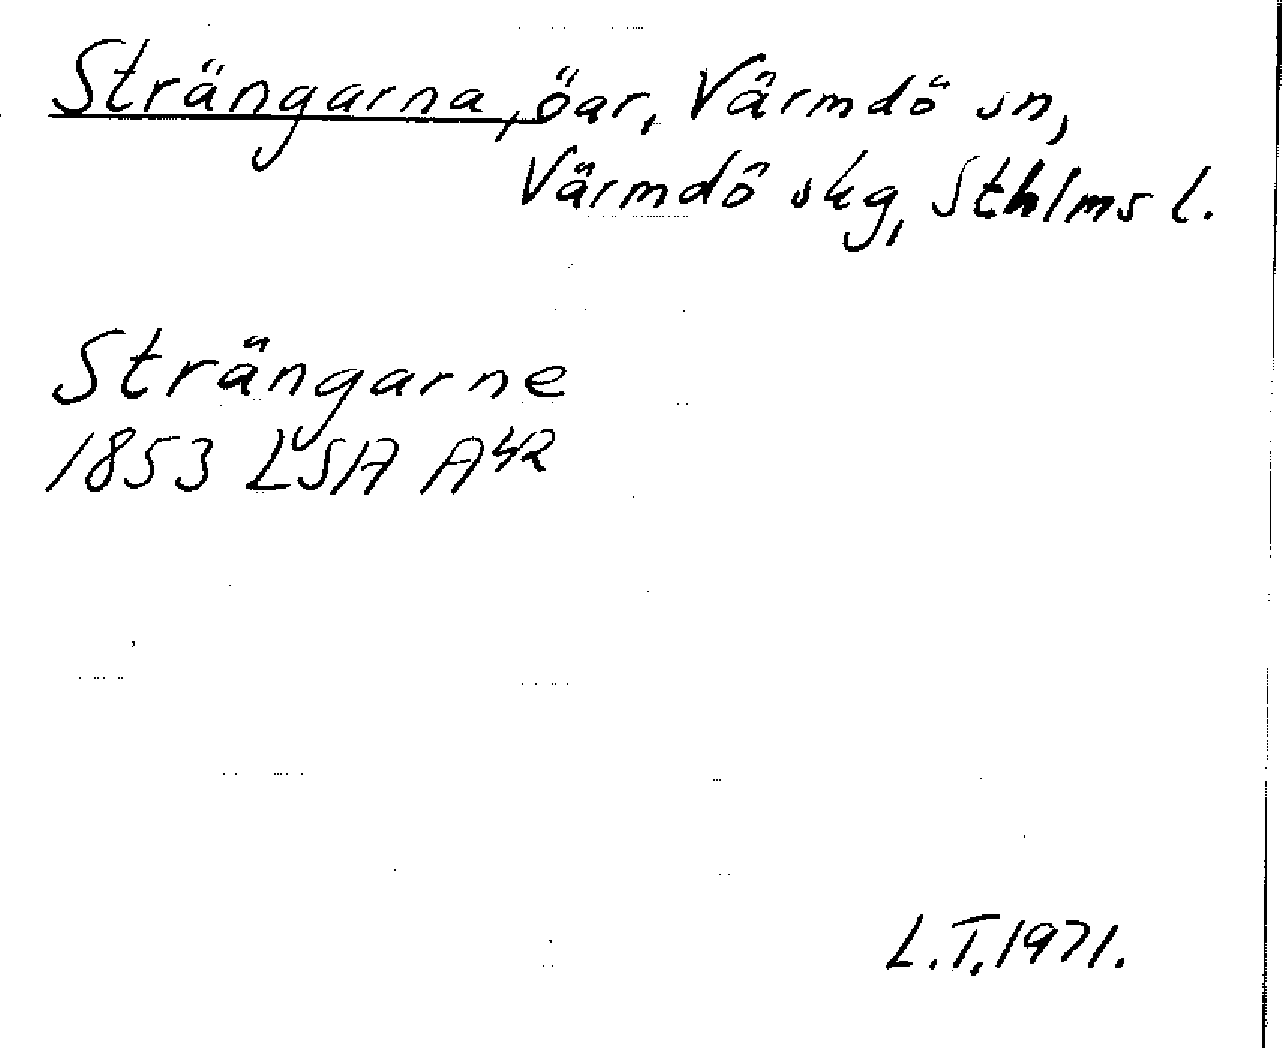 Strängarna, öar, Värmdö sn,
Värmdö skg, Sthlms l.
Strängarne
1853 LSA A42
L.T. 1971.